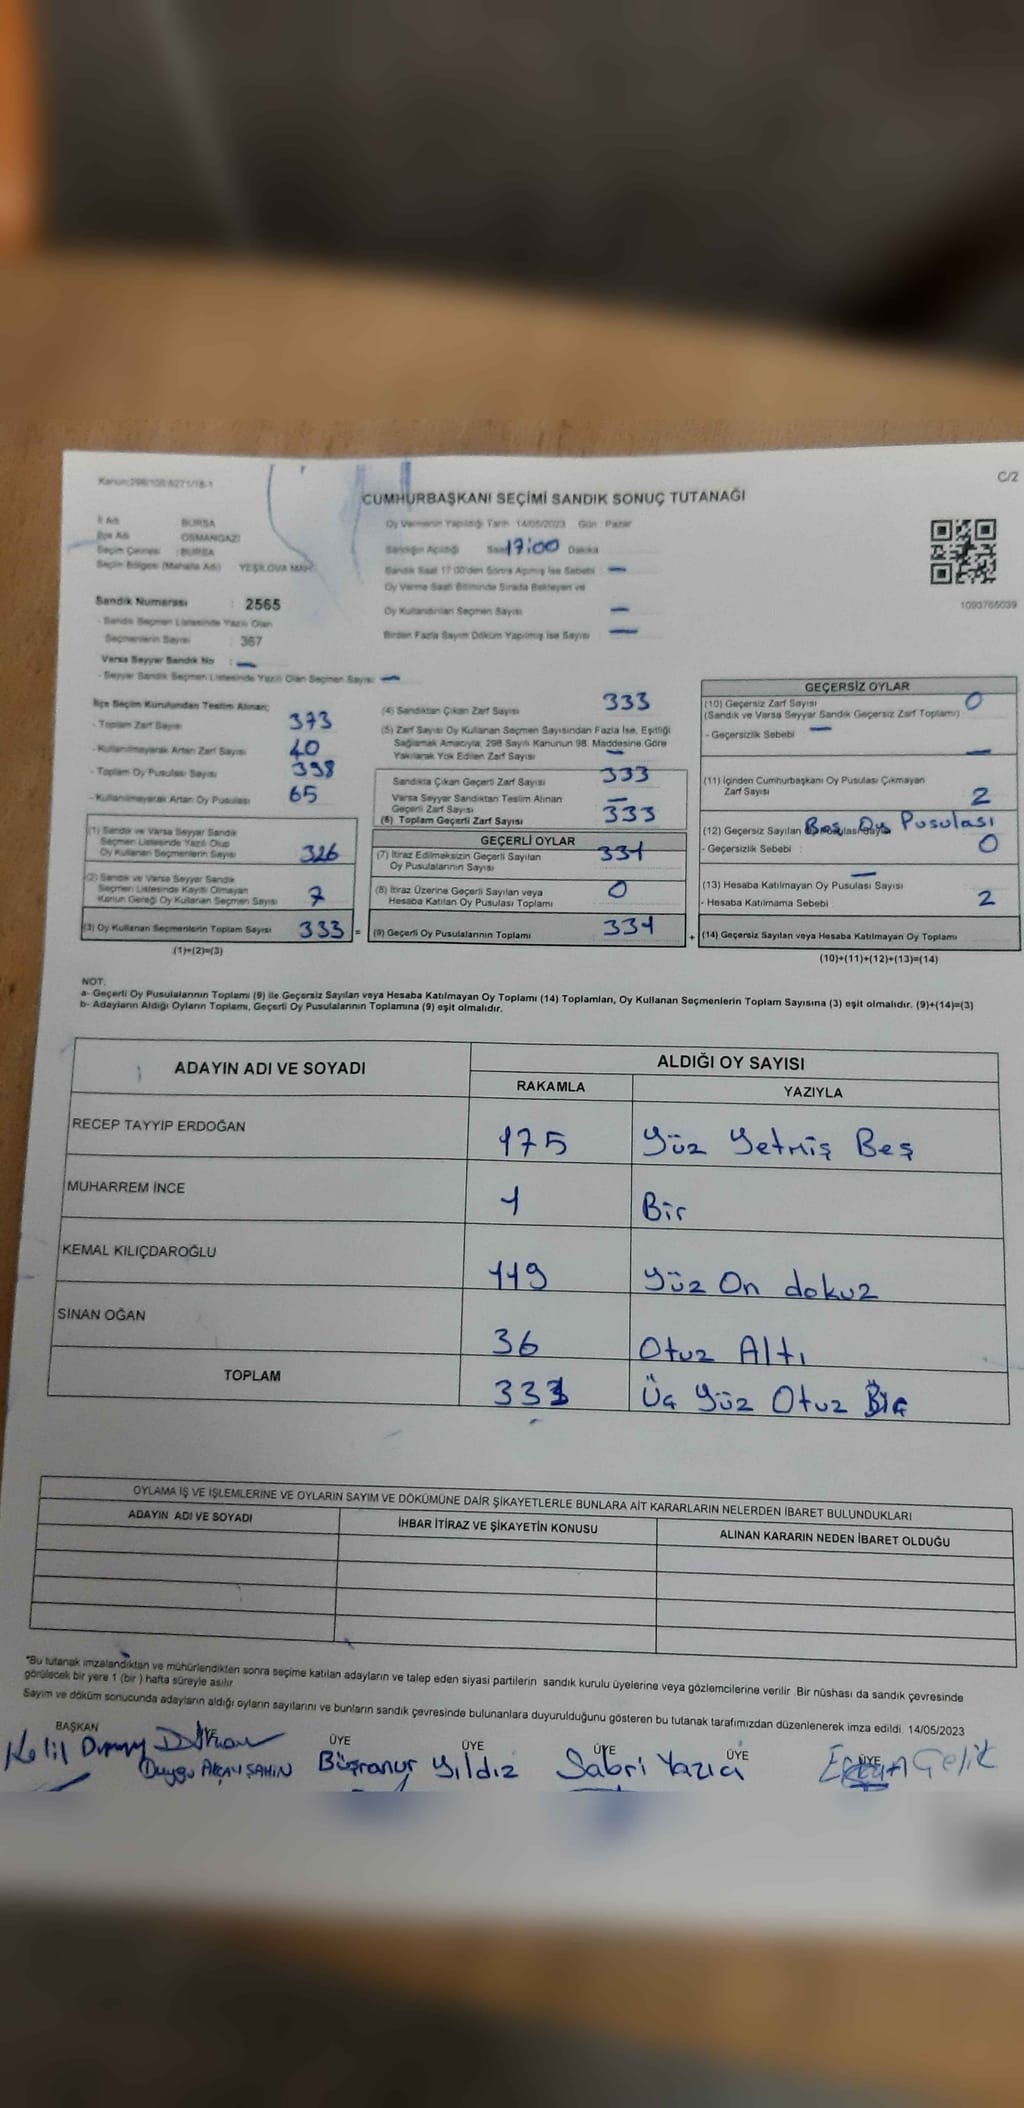 Kanun:298/105 6271/18-1
C/2
CUMHURBAŞKANI SEÇİMİ SANDIK SONUÇ TUTANAĞI
İl Adı BURSA
İlçe Adı OSMANGAZİ
Seçim Çevresi : BURSA
Seçim Bölgesi (Mahalle Adı) YEŞİLOVA MAH.
Sandık Numarası : 2565
- Sandık Seçmen Listesinde Yazılı Olan
Seçmenlerin Sayısı : 367
Varsa Seyyar Sandık No : —
- Seyyar Sandık Seçmen Listesinde Yazılı Olan Seçmen Sayısı : —
Oy Vermenin Yapıldığı Tarih 14/05/2023 Gün : Pazar
Sandığın Açıldığı Saat 17:00 Dakika
Sandık Saat 17:00'den Sonra Açılmış İse Sebebi : —
Oy Verme Saati Bitiminde Sırada Bekleyen ve
Oy Kullandırılan Seçmen Sayısı —
Birden Fazla Sayım Döküm Yapılmış İse Sayısı —
1093765039
İlçe Seçim Kurulundan Teslim Alınan;
- Toplam Zarf Sayısı 373
- Kullanılmayarak Artan Zarf Sayısı 40
- Toplam Oy Pusulası Sayısı 398
- Kullanılmayarak Artan Oy Pusulası 65
(1) Sandık ve Varsa Seyyar Sandık
Seçmen Listesinde Yazılı Olup
Oy Kullanan Seçmenlerin Sayısı 326
(2) Sandık ve Varsa Seyyar Sandık
Seçmen Listesinde Kayıtlı Olmayan
Kanun Gereği Oy Kullanan Seçmen Sayısı 7
(3) Oy Kullanan Seçmenlerin Toplam Sayısı 333 =
(1)+(2)=(3)
(4) Sandıktan Çıkan Zarf Sayısı 333
(5) Zarf Sayısı Oy Kullanan Seçmen Sayısından Fazla İse, Eşitliği
Sağlamak Amacıyla; 298 Sayılı Kanunun 98. Maddesine Göre
Yakılarak Yok Edilen Zarf Sayısı —
Sandıkta Çıkan Geçerli Zarf Sayısı 333
Varsa Seyyar Sandıktan Teslim Alınan
Geçerli Zarf Sayısı —
(6) Toplam Geçerli Zarf Sayısı 333
GEÇERLİ OYLAR
(7) İtiraz Edilmeksizin Geçerli Sayılan
Oy Pusulalarının Sayısı 331
(8) İtiraz Üzerine Geçerli Sayılan veya
Hesaba Katılan Oy Pusulası Toplamı 0
(9) Geçerli Oy Pusulalarının Toplamı 331 +
GEÇERSİZ OYLAR
(10) Geçersiz Zarf Sayısı 0
(Sandık ve Varsa Seyyar Sandık Geçersiz Zarf Toplamı)
- Geçersizlik Sebebi —
—
(11) İçinden Cumhurbaşkanı Oy Pusulası Çıkmayan
Zarf Sayısı 2
(12) Geçersiz Sayılan Oy Pusulası Sayısı
Boş Oy Pusulası
- Geçersizlik Sebebi : 0
(13) Hesaba Katılmayan Oy Pusulası Sayısı —
- Hesaba Katılmama Sebebi 2
(14) Geçersiz Sayılan veya Hesaba Katılmayan Oy Toplamı
(10)+(11)+(12)+(13)=(14)
NOT:
a- Geçerli Oy Pusulalarının Toplamı (9) ile Geçersiz Sayılan veya Hesaba Katılmayan Oy Toplamı (14) Toplamları, Oy Kullanan Seçmenlerin Toplam Sayısına (3) eşit olmalıdır. (9)+(14)=(3)
b- Adayların Aldığı Oyların Toplamı, Geçerli Oy Pusulalarının Toplamına (9) eşit olmalıdır.
ADAYIN ADI VE SOYADI ALDIĞI OY SAYISI
RAKAMLA YAZIYLA
RECEP TAYYİP ERDOĞAN 175 Yüz Yetmiş Beş
MUHARREM İNCE 1 Bir
KEMAL KILIÇDAROĞLU 119 Yüz On dokuz
SİNAN OĞAN 36 Otuz Altı
TOPLAM 331 Üç Yüz Otuz Bir
OYLAMA İŞ VE İŞLEMLERİNE VE OYLARIN SAYIM VE DÖKÜMÜNE DAİR ŞİKAYETLERLE BUNLARA AİT KARARLARIN NELERDEN İBARET BULUNDUKLARI
ADAYIN ADI VE SOYADI İHBAR İTİRAZ VE ŞİKAYETİN KONUSU ALINAN KARARIN NEDEN İBARET OLDUĞU
*Bu tutanak imzalandıktan ve mühürlendikten sonra seçime katılan adayların ve talep eden siyasi partilerin sandık kurulu üyelerine veya gözlemcilerine verilir. Bir nüshası da sandık çevresinde
görülecek bir yere 1 (bir) hafta süreyle asılır.
Sayım ve döküm sonucunda adayların aldığı oyların sayılarını ve bunların sandık çevresinde bulunanlara duyurulduğunu gösteren bu tutanak tarafımızdan düzenlenerek imza edildi. 14/05/2023
BAŞKAN ÜYE ÜYE ÜYE ÜYE ÜYE ÜYE
Duygu ŞAHİN Büşranur Yıldız Sabri Yazıcı Çelik